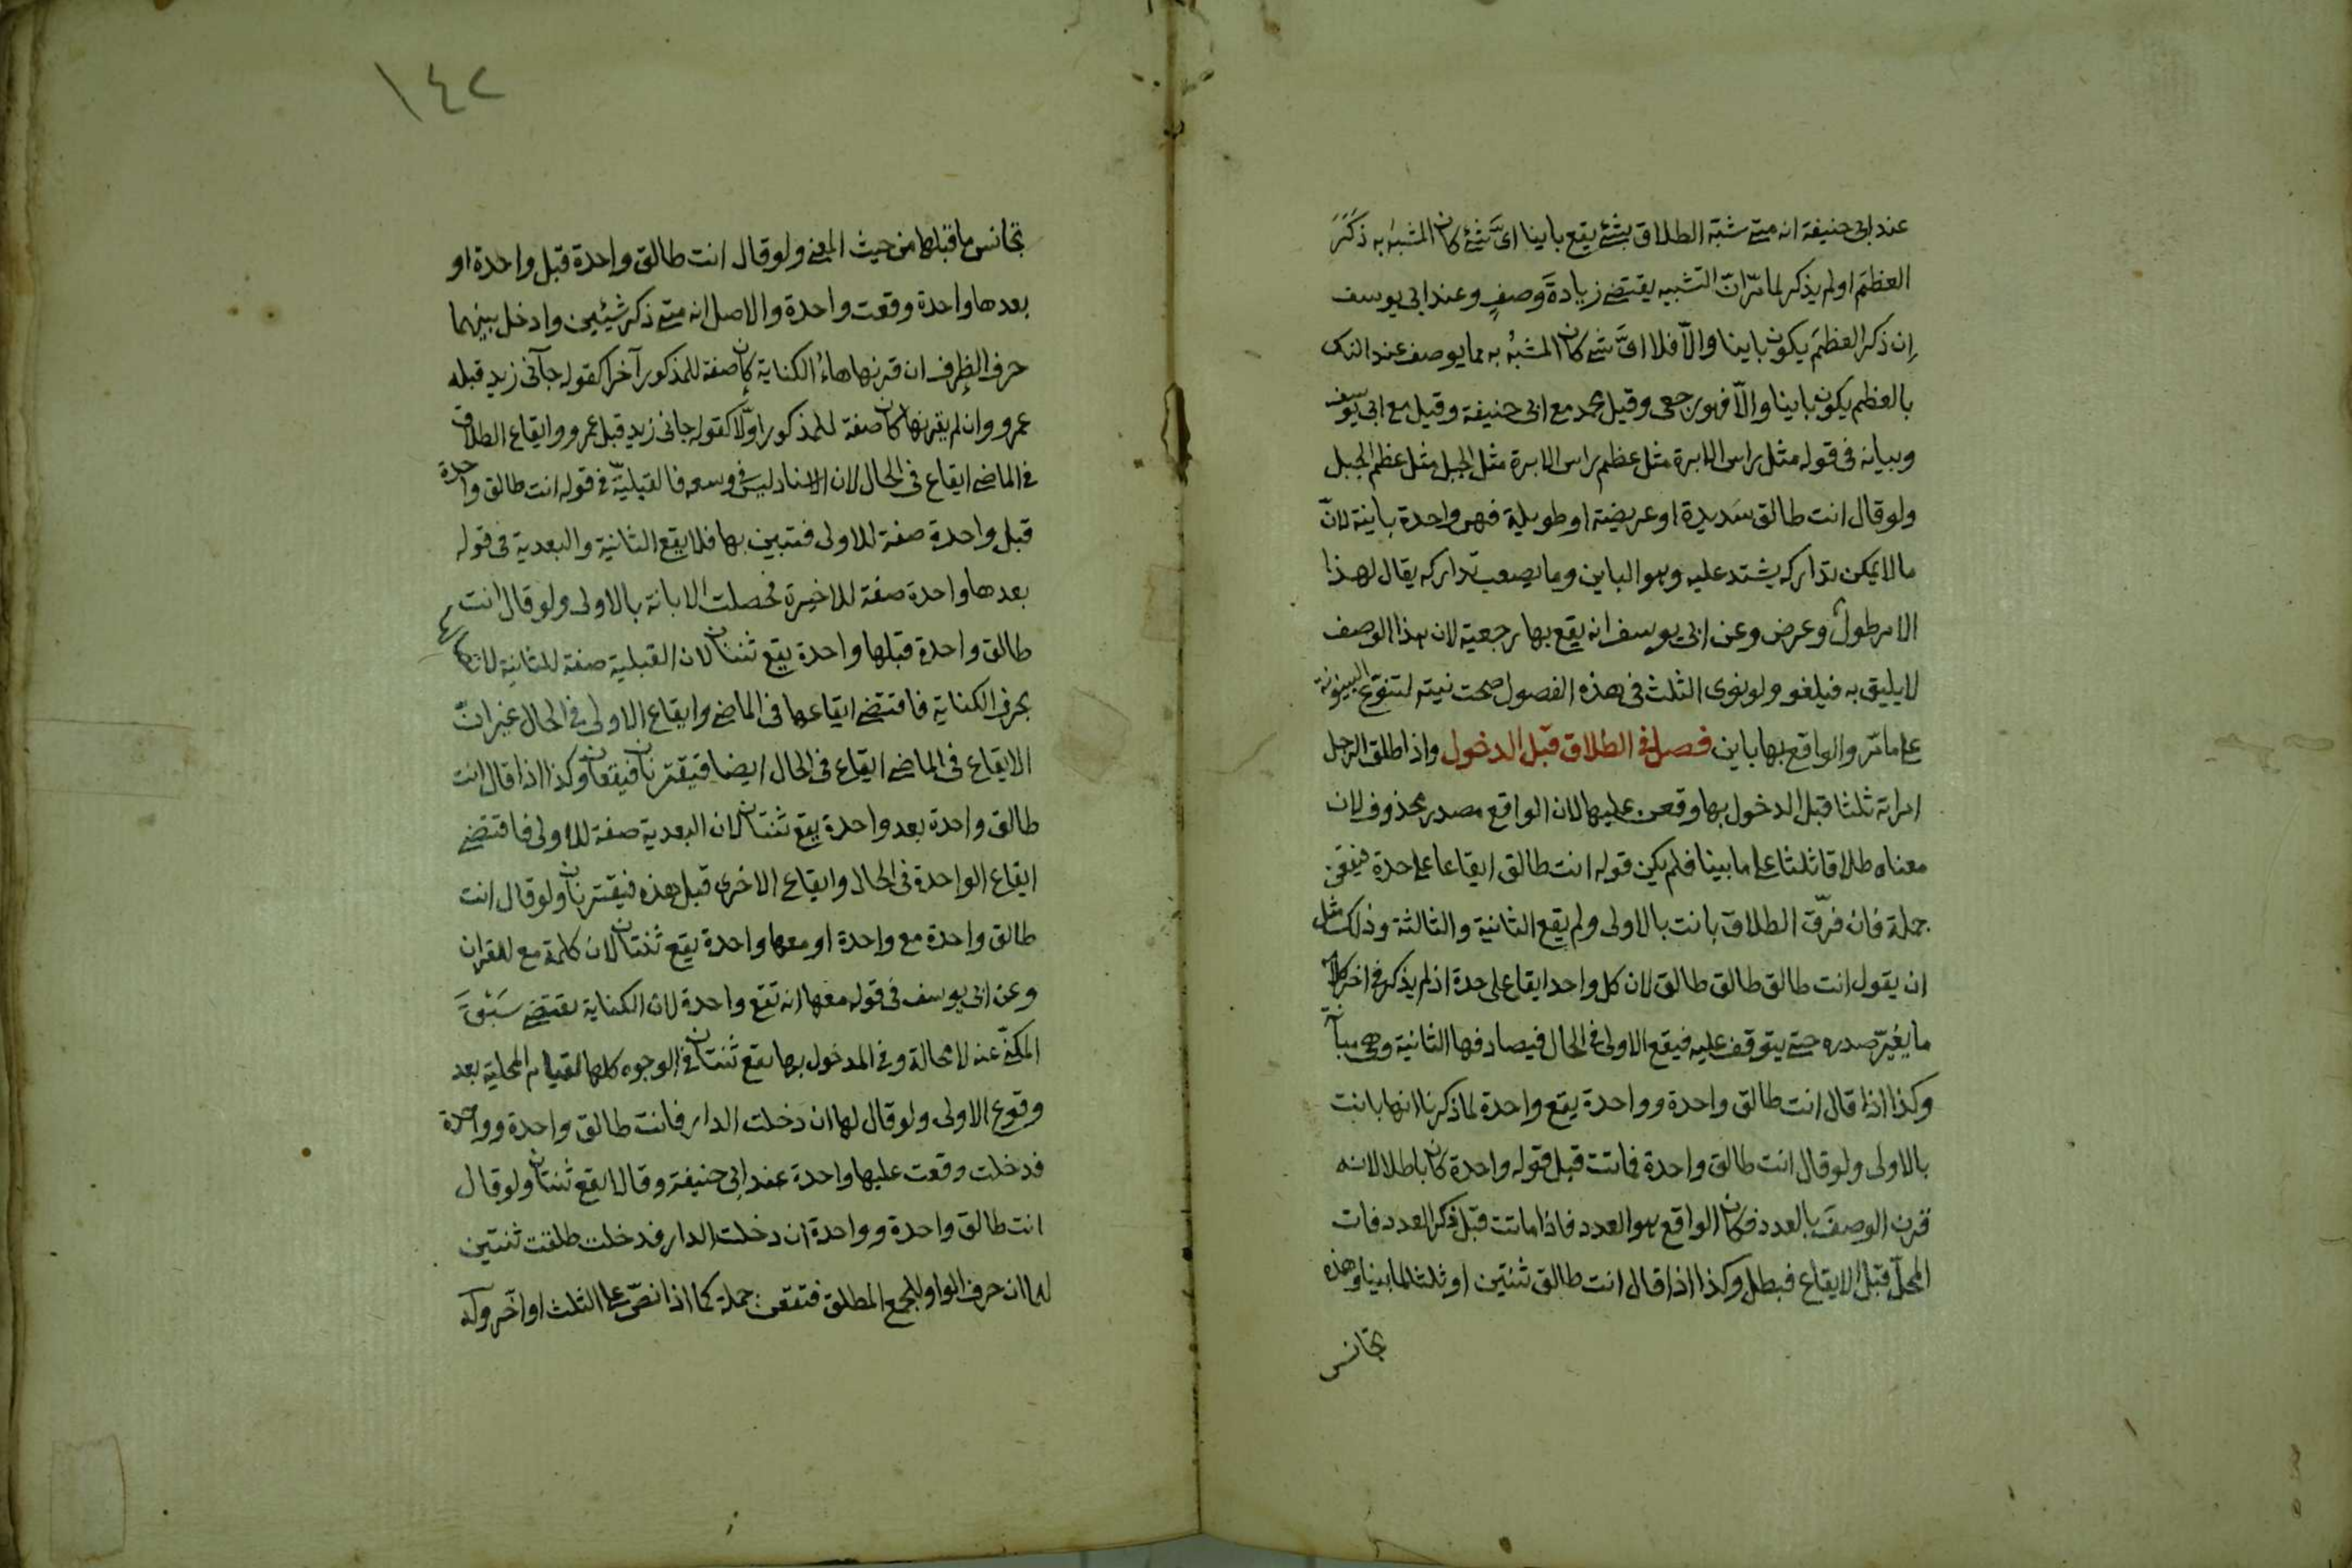 عند ابى حنيفة انه متى شبّه الطلاق بشئ يقع باينا اىَّ شئ كان المشبه به ذَكَرَ
العظمَ اولم يذكر لما مرّ انّ التشبيه يقتضى زيادةَ وصفٍ وعند ابى يوسف
اِن ذكر العظمَ يكون باينا والّا فلا اىَّ شئ كان المشبهُ به مما يوصف عند الناس
بالعظم يكون باينا والّا فهو رجعى وقيل محمد مع ابى حنيفة وقيل مع ابى يوسف
وبيانه فى قوله مثل راس الابرة مثل عظم راس الابرة مثل الجبل مثل عظم الجبل
ولو قال انت طالق شديدة او عريضة او طويلة فهى واحدة باينة لانّ
مالا يمكن تداركه يشتد عليه وهو الباين وما يصعب تداركه يقال لهذا
الامر طول وعرض وعن ابى يوسف انه يقع بها رجعية لان هذا الوصف
لا يليق به فيلغو ولو نوى الثلث فى هذه الفصول صحت نيته لتنوّع البينونة
على ما مرّ والواقع بها باين فصل فى الطلاق قبل الدخول واذا طلق الرجل
امراته ثلثا قبل الدخول بها وقعن عليها لان الواقع مصدر محذوف لان
معناه طلاقا ثلثا على ما بينا فلم يكن قوله انت طالق ايقاعا على حدة فيقعن
جملة فان فرّق الطلاق بانت بالاولى ولم يقع الثانية والثالثة وذلك مثل
ان يقول انت طالق طالق طالق لان كل واحد ايقاع على حدة اذ لم يذكر فى اخر كلامه
ما يغيّر صدره حتى يتوقف عليه فيقع الاولى فى الحال فيصادفها الثانية وهى مبانة
وكذا اذا قال انت طالق واحدة وواحدة يقع واحدة لما ذكرنا انها بانت
بالاولى ولو قال انت طالق واحدة فماتت قبل قوله واحدة كان باطلا لانه
قرن الوصفَ بالعدد فكان الواقع هو العدد فاذا ماتت قبل ذكر العدد فات
المحلّ قبل الايقاع فبطل وكذا اذا قال انت طالق ثنتين او ثلثا لما بينا وهذه
تجانس
١٤٢
تجانس ما قبلها من حيث المعنى ولو قال انت طالق واحدة قبل واحدة او
بعدها واحدة وقعت واحدة والاصل انه متى ذكر شيئين وادخل بينهما
حرف الظرف ان قرنها هاءُ الكناية كان صفة للمذكور آخرا كقوله جآنى زيد قبله
عمرو وان لم يقرنها كان صفة للمذكور اوّلا كقوله جانى زيد قبل عمرو وايقاع الطلاق
فى الماضى ايقاع فى الحال لان الاسناد ليس فى وسعه فالقبليّة فى قوله انت طالق واحدة
قبل واحدة صفة للاولى فتبين بها فلا يقع الثانية والبعدية فى قوله
بعدها واحدة صفة للاخيرة فحصلت الابانة بالاولى ولو قال انت
طالق واحدة قبلها واحدة يقع ثنتان لان القبلية صفة للثانية لاتصالها
بحرف الكناية فاقتضى ايقاعها فى الماضى وايقاع الاولى فى الحال غير انّ
الايقاع فى الماضى ايقاع فى الحال ايضا فيقترنان فيقعان وكذا اذا قال انت
طالق واحدة بعد واحدة يقع ثنتان لان البعدية صفة للاولى فاقتضى
ايقاع الواحدة فى الحال وايقاع الاخرى قبل هذه فيقترنان ولو قال انت
طالق واحدة مع واحدة او معها واحدة يقع ثنتان لان كلمة مع للقران
وعن ابى يوسف فى قوله معها انه تقع واحدة لان الكناية تقتضى سَبْقَ
المكنّى عنه لا محالة وفى المدخول بها تقع ثنتان فى الوجوه كلها لقيام المحلية بعد
وقوع الاولى ولو قال لها ان دخلت الدار فانت طالق واحدة وواحدة
فدخلت وقعت عليها واحدة عند ابى حنيفة وقالا يقع ثنتان ولو قال
انت طالق واحدة وواحدة ان دخلت الدار فدخلت طلقت ثنتين
لهما ان حرف الواو للجمع المطلق فتقعن جملة كما اذا نصّ على الثلث او اخّر وله